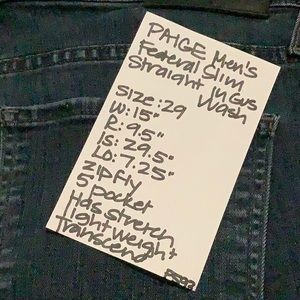 PAIGE Men's
Federal Slim
Straight in Gus
Wash
Size: 29
W: 15"
R: 9.5"
IS: 29.5"
LO: 7.25"
Zip fly
5 pocket
Has stretch
Lightweight
Transcend